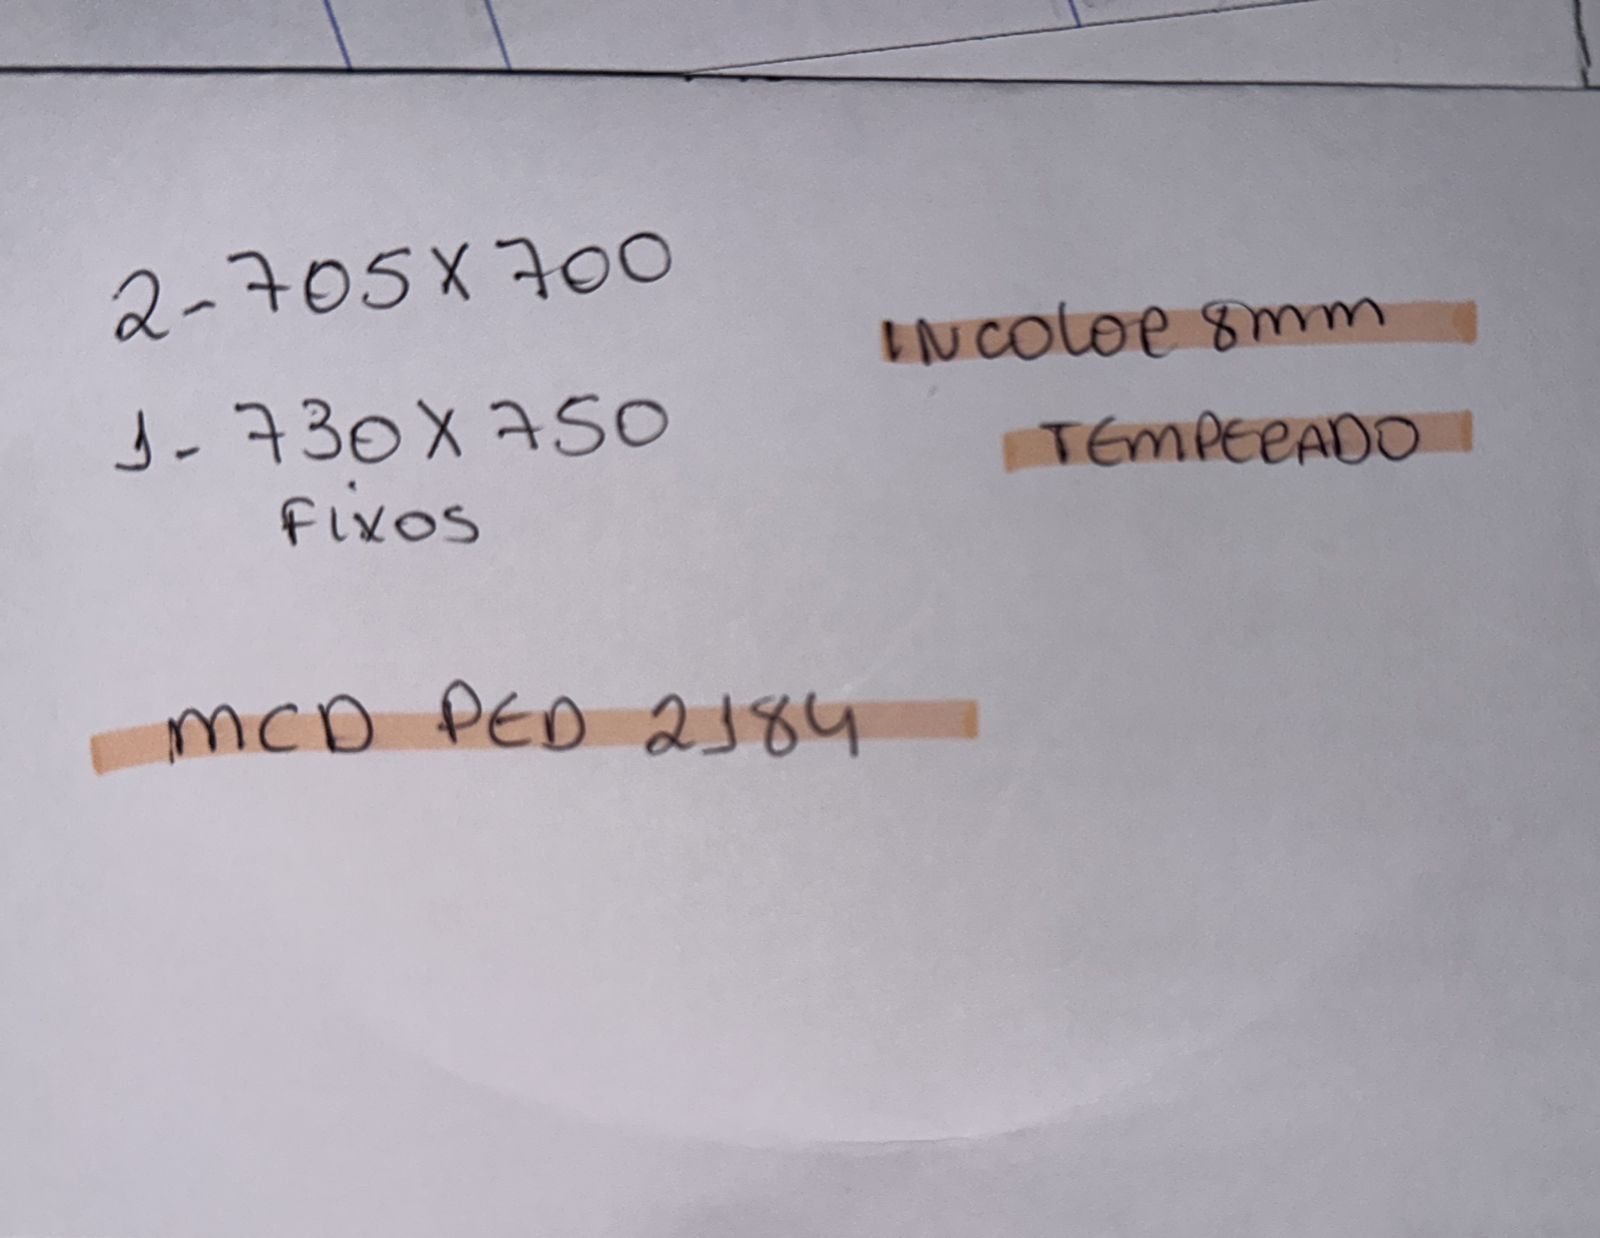 2-705X700
INCOLOR 8mm
1-730X750
TEMPERADO
FIXOS
MCD PED 2184